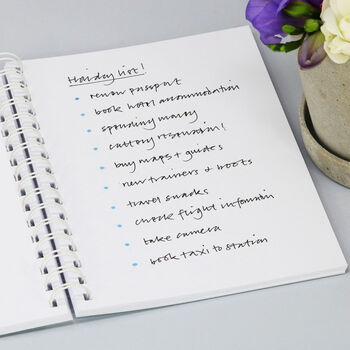 Holiday list!
renew passport
book hotel accommodation
spending money
cattery reservation!
buy maps + guides
new trainers & boots
travel snacks
check flight information
take camera
book taxi to station